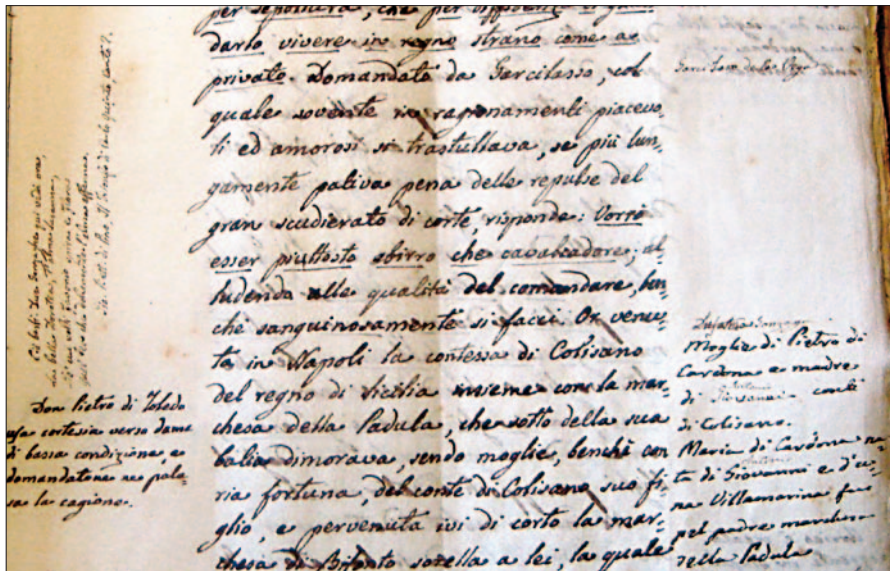 per sepoltura, che per
dario vivere in regno strano come a
privato. Domandato da Garcilasso, col
quale sovente in ragionamenti piacevo-
li ed amorosi si trastullava, se più lun-
gamente pativa pena delle repulse del
gran scudierato di corte, risponde: Vorrò
esser piuttosto sbirro che cavalcadore; al-
ludendo alle qualità del comandare, ben-
che sanguinosamente si facci. Or venu-
ta in Napoli la contessa di Colisano
del regno di Sicilia insieme con la mar-
chesa della Padula, che sotto della sua
balia dimorava, sendo moglie, benchè con
ria fortuna, del conte di Colisano suo fi-
glio, e pervenuta ivi di corto la mar-
chesa di Bitonto sorella a lei, la quale
Don Pietro di Toledo
usa cortesia verso dame
di bassa condizione, e
domandatone ne pale-
sa la cagione.
Moglie di Pietro di
Cardona e madre
di Antonio conte
di Colisano.
Maria di Cardona na-
ta di Giovanni e d'u-
na Villamarina fu
pel padre marchesa
della Padula